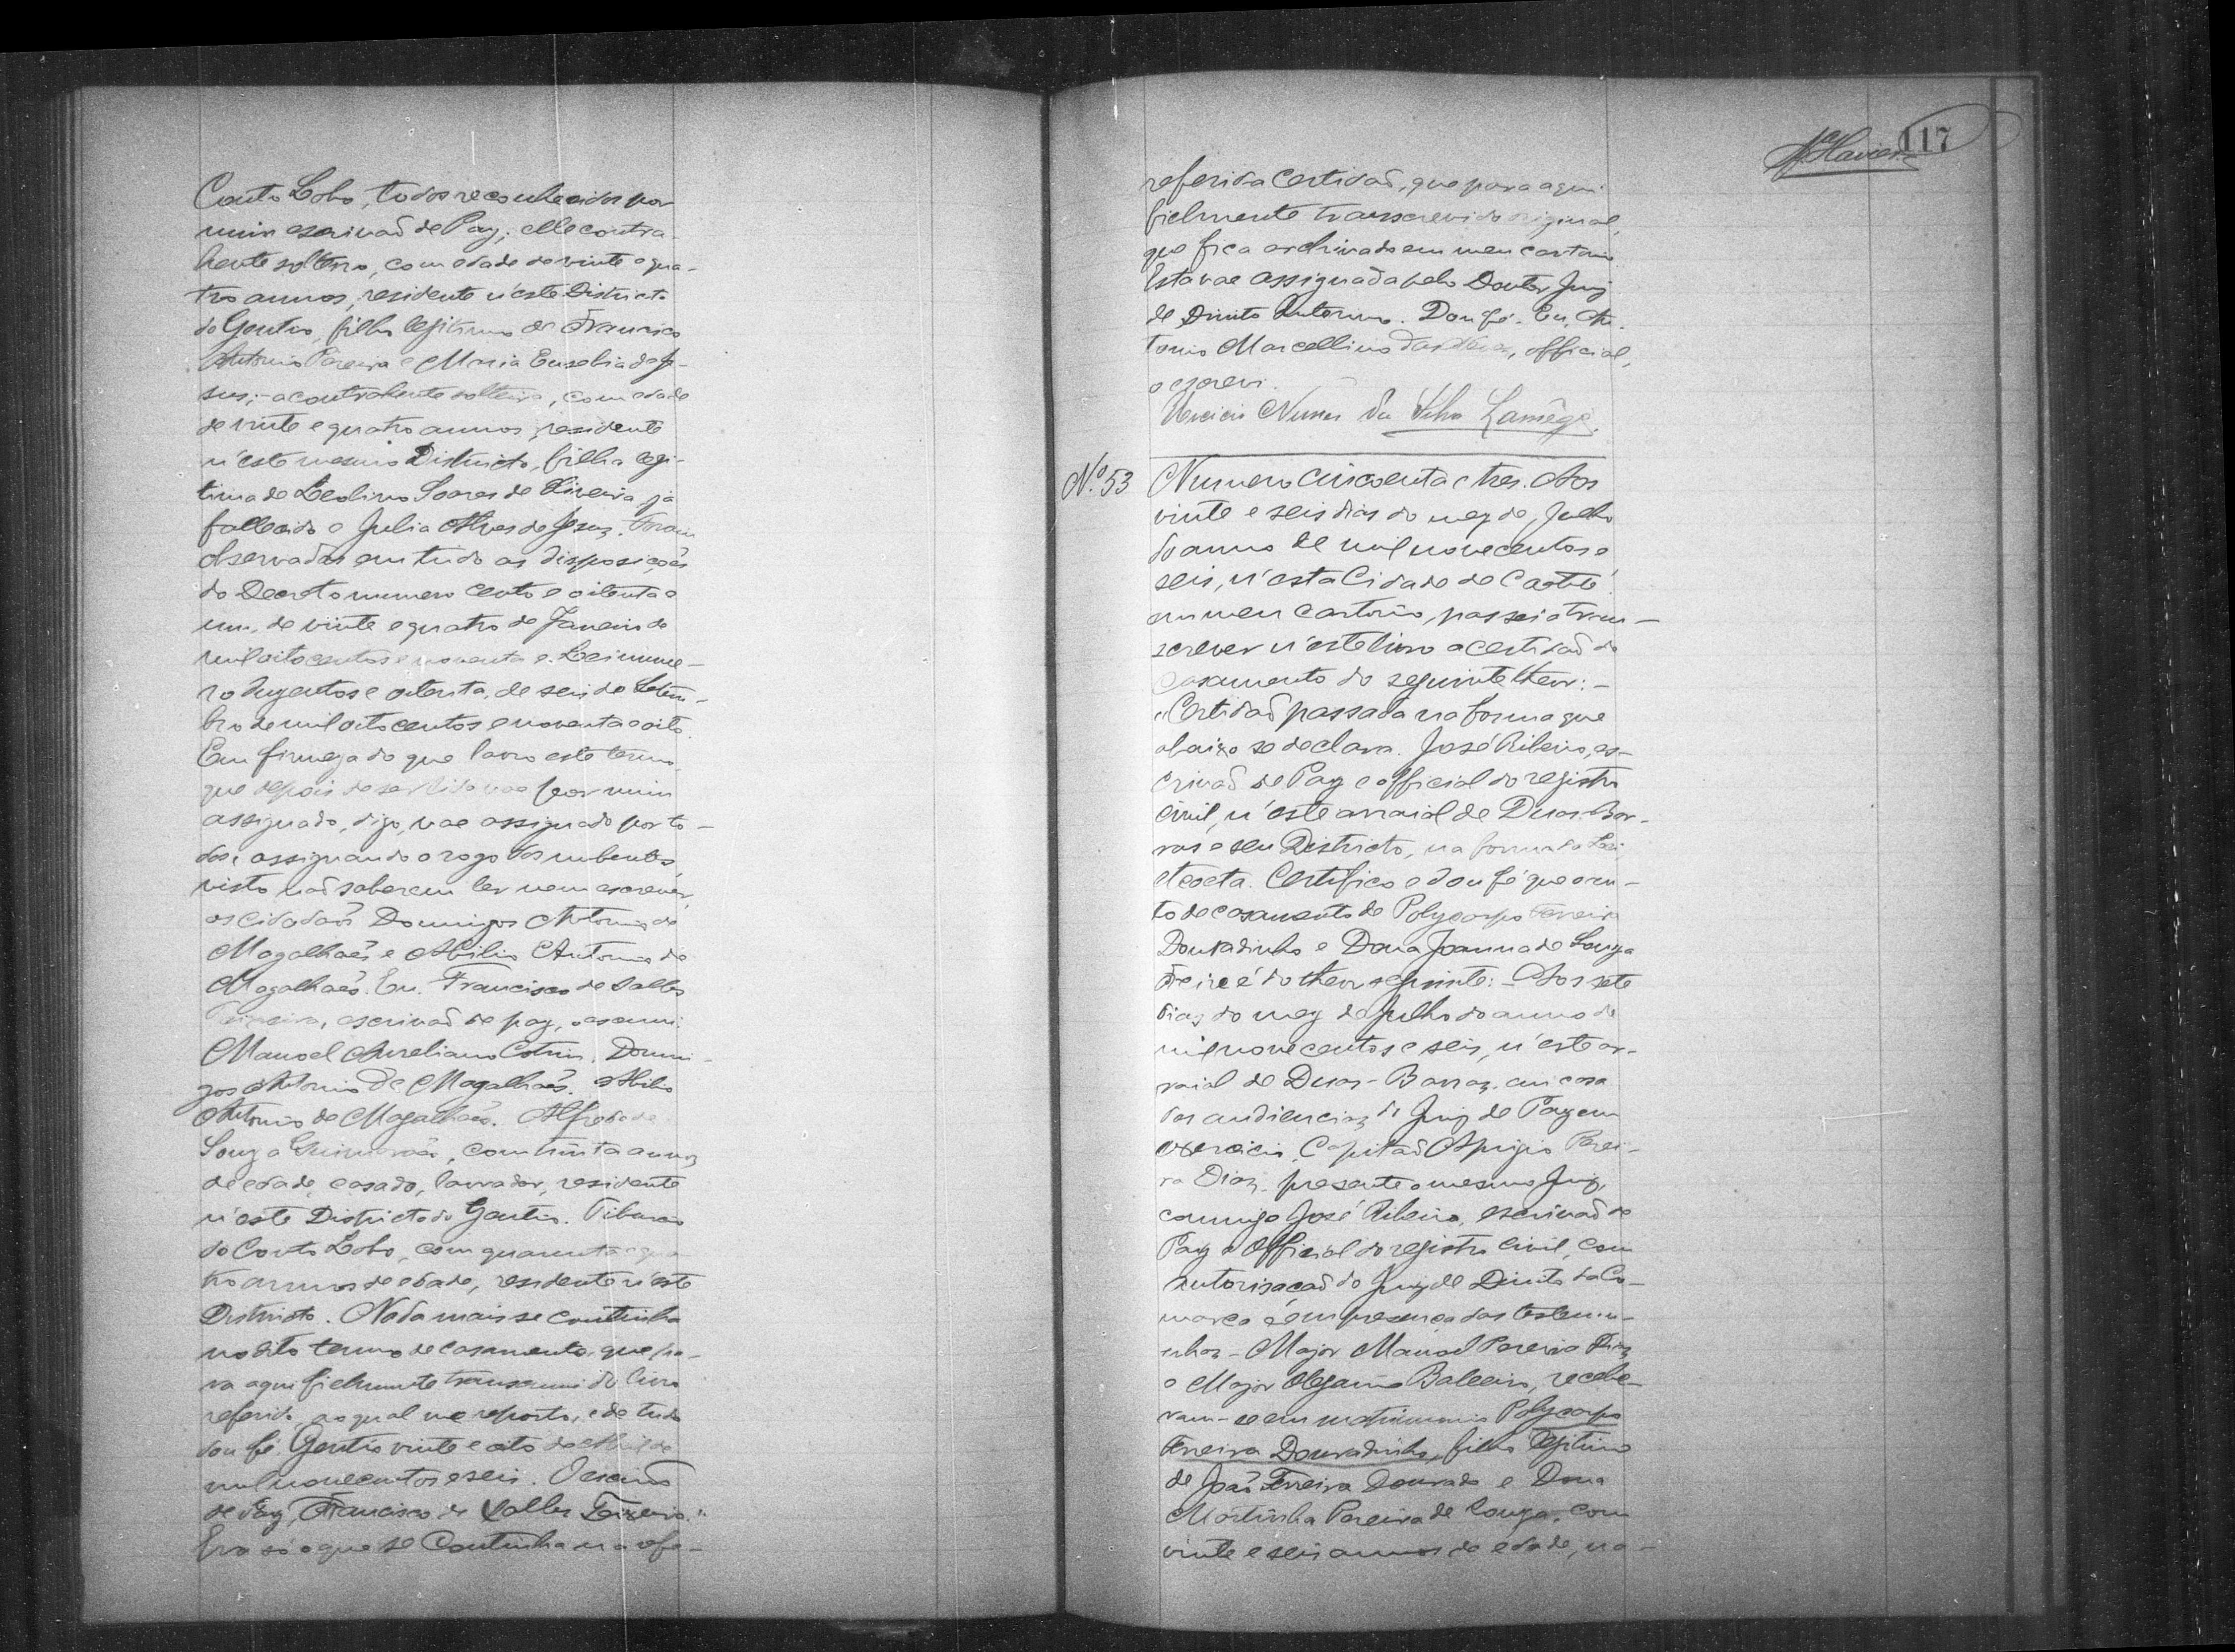 Couto Lobo, todos reconhecidos por
mim escrivaõ de Paz; elle contra-
hente solteiro, com edade de vinte e qua-
tro annos, residente n'este Districto
do Gentio, filho legitimo de Francisco
Antonio Pereira e Maria Eusebia de Je-
sus; a contrahente solteira, com edade
de vinte e quatro annos, residente
n'este mesmo Districto, filha legi-
tima de Leolino Soares de Oliveira já
fallecido e Julia Alves de Jesus. Foram
observadas em tudo as disposições
do Decreto numero cento e oitenta e
um, de vinte e quatro de Janeiro de
mil oitocentos e noventa e Lei nume-
ro dugentos e oitenta, de seis de Setem-
bro de mil oito centos e noventa e oito.
Em firmeza do que lavro este termo,
que depois de ser lido vae por mim
assignado, digo, vae assignado por to-
dos, assignando a rogo dos nubentes,
visto naõ saberem ler nem escrever,
os cidadaõs Domingos Antonio de
Magalhaẽs e Abilio Antonio de
Magalhaẽs. Eu. Francisco de Salles
Teixeira, escrivaõ de paz, o escrevi.
Manoel Aureliano Cotrim. Domin-
gos Antonio de Magalhaẽs. Abilio
Antonio de Magalhaẽs. Alfredo de
Souza Guimarães, com trinta annos
de edade, casado, lavrador, residente
n'este Districto do Gentio. Tiburcio
do Couto Lobo, com quarenta e qua-
tro annos de edade, residente n'este
Districto. Nada mais se continha
no dito termo de casamento, que pa-
ra aqui fielmente transcrevi do livro
referido, ao qual me reporto, e de tudo
dou fé. Gentio vinte e oito de Abril de
mil novecentos e seis. O escrivaõ
de Paz, Francisco de Salles Teixeira."
Era só o que se continha na refe-
117
referida certidaõ, que para aqui
fielmente transcrevi do original,
que fica archivado em meu cartorio.
Esta vae assignada pelo Doutor Juiz
de Direito Interino. Dou fé. Eu, An-
tonio Marcellino das Neves, official,
o escrevi.
Nunes da Silva Lamêgo.
Nº. 53
Numero cincoenta e tres. Aos
vinte e seis dias do mez de Julho
do anno de mil novecentos e
seis, n'esta Cidade de Caetité
em meu cartorio, passei a trans-
crever n'este livro a certidaõ de
casamento do seguinte theor:-
"Certidaõ passada na forma que
abaixo se declara. José Ribeiro, es-
crivaõ de Paz e official do registro
civil, n'este arraial de Duas-Bar-
ras e seu Districto, na forma da Lei
etcoeta. Certifico e dou fé que o au-
to de casamento de Polycarpo Ferreira
Douradinho e Dona Joanna de Souza
Freire é do theor seguinte:- Aos sete
dias do mez de Julho do anno de
mil novecentos e seis, n'este ar-
raial de Duas-Barras, em casa
das audiencias do Juiz de Paz em
exercicio, Capitaõ Aprigio Perei-
ra Dias, presente o mesmo Juiz,
commigo José Ribeiro, escrivaõ de
Paz e Official do registro civil, com
autorisaçaõ do Juiz de Direito da Co-
marca e em presença das testemu-
nhas - Major Manoel Pereira Dias
e Major Olegario Baleeiro, recebe-
ram-se em matrimonio Polycarpo
Ferreira Douradinho, filho legitimo
de Joaõ Ferreira Dourado e Dona
Martinha Pereira de Souza, com
vinte e seis annos de edade, na-